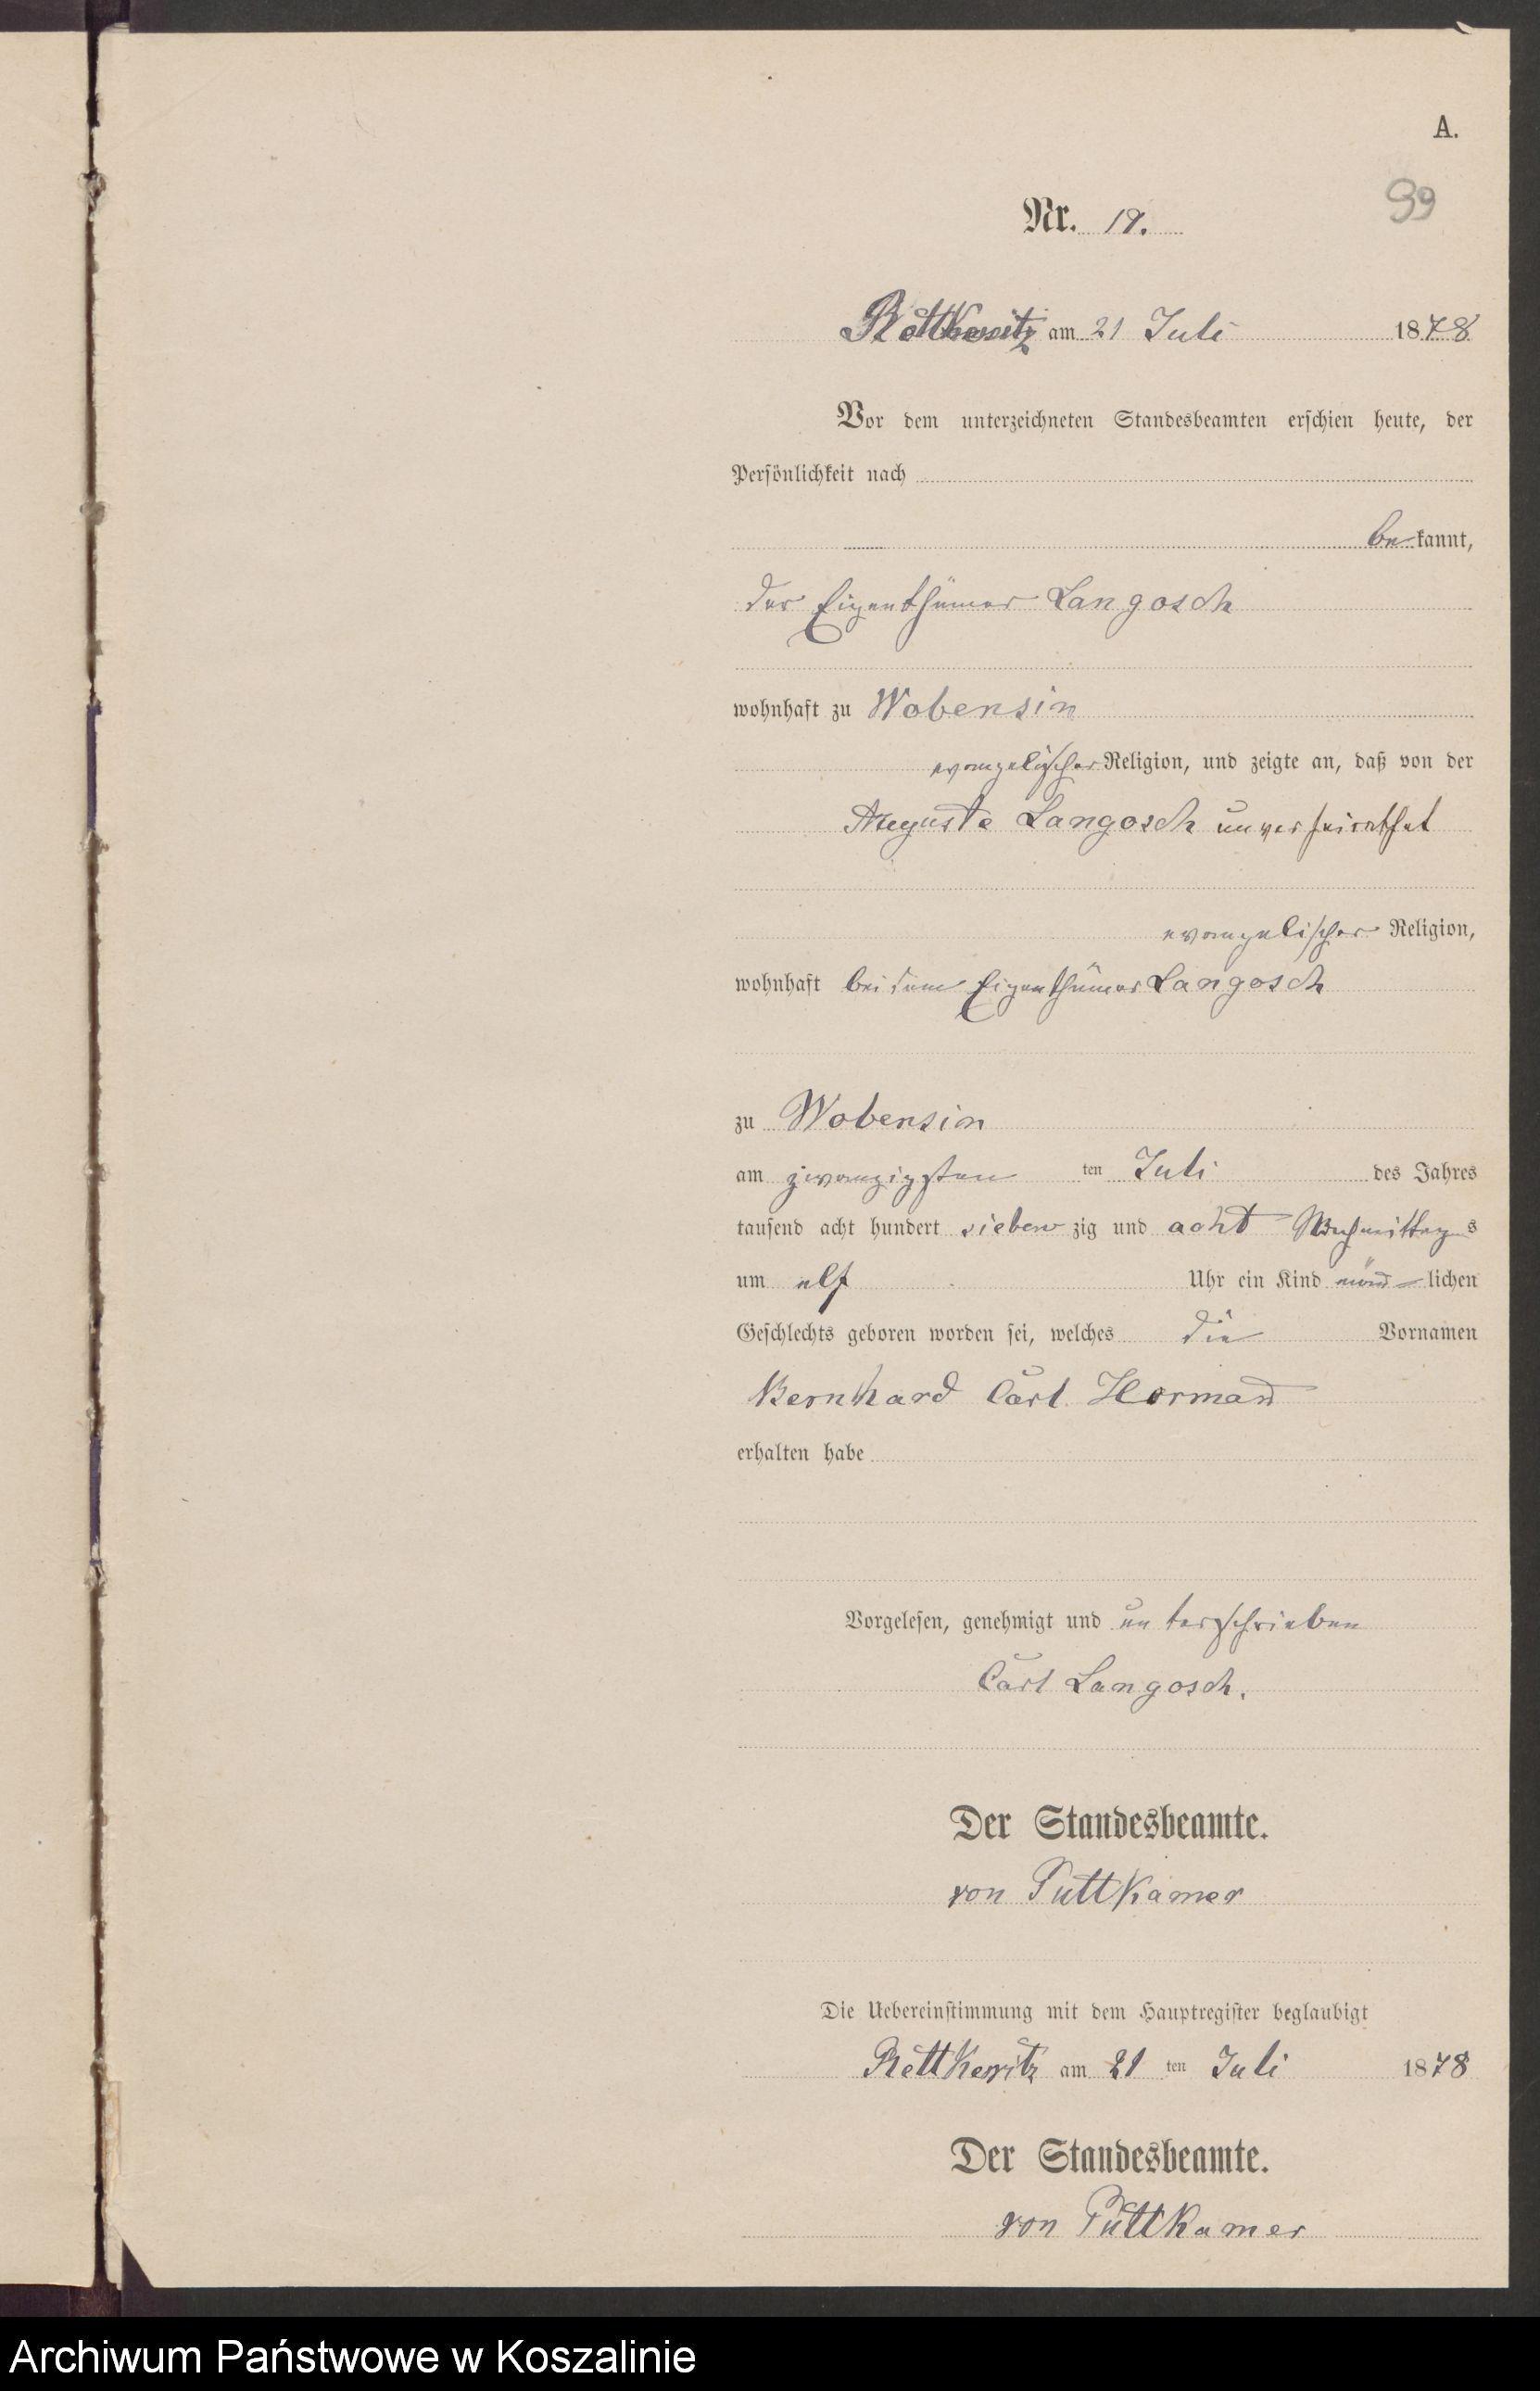 A.
99
Nr. 19.
Rettkewitz am 21 Juli 1878
Vor dem unterzeichneten Standesbeamten erschien heute, der
Persönlichkeit nach
bekannt,
der Eigenthümer Langosch
wohnhaft zu Wobensin
evangelischer Religion, und zeigte an, daß von der
Auguste Langosch unverheirathet
evangelischer Religion,
wohnhaft bei dem Eigenthümer Langosch
zu Wobensin
am zwanzigsten ten Juli des Jahres
tausend acht hundert siebenzig und acht Nachmittags
um elf Uhr ein Kind männlichen
Geschlechts geboren worden sei, welches die Vornamen
Bernhard Carl Herman̄
erhalten habe
Vorgelesen, genehmigt und unterschrieben
Carl Langosch.
Der Standesbeamte.
von Puttkamer
Die Uebereinstimmung mit dem Hauptregister beglaubigt
Rettkewitz am 21 ten Juli 1878
Der Standesbeamte.
von Puttkamer
Archiwum Państwowe w Koszalinie